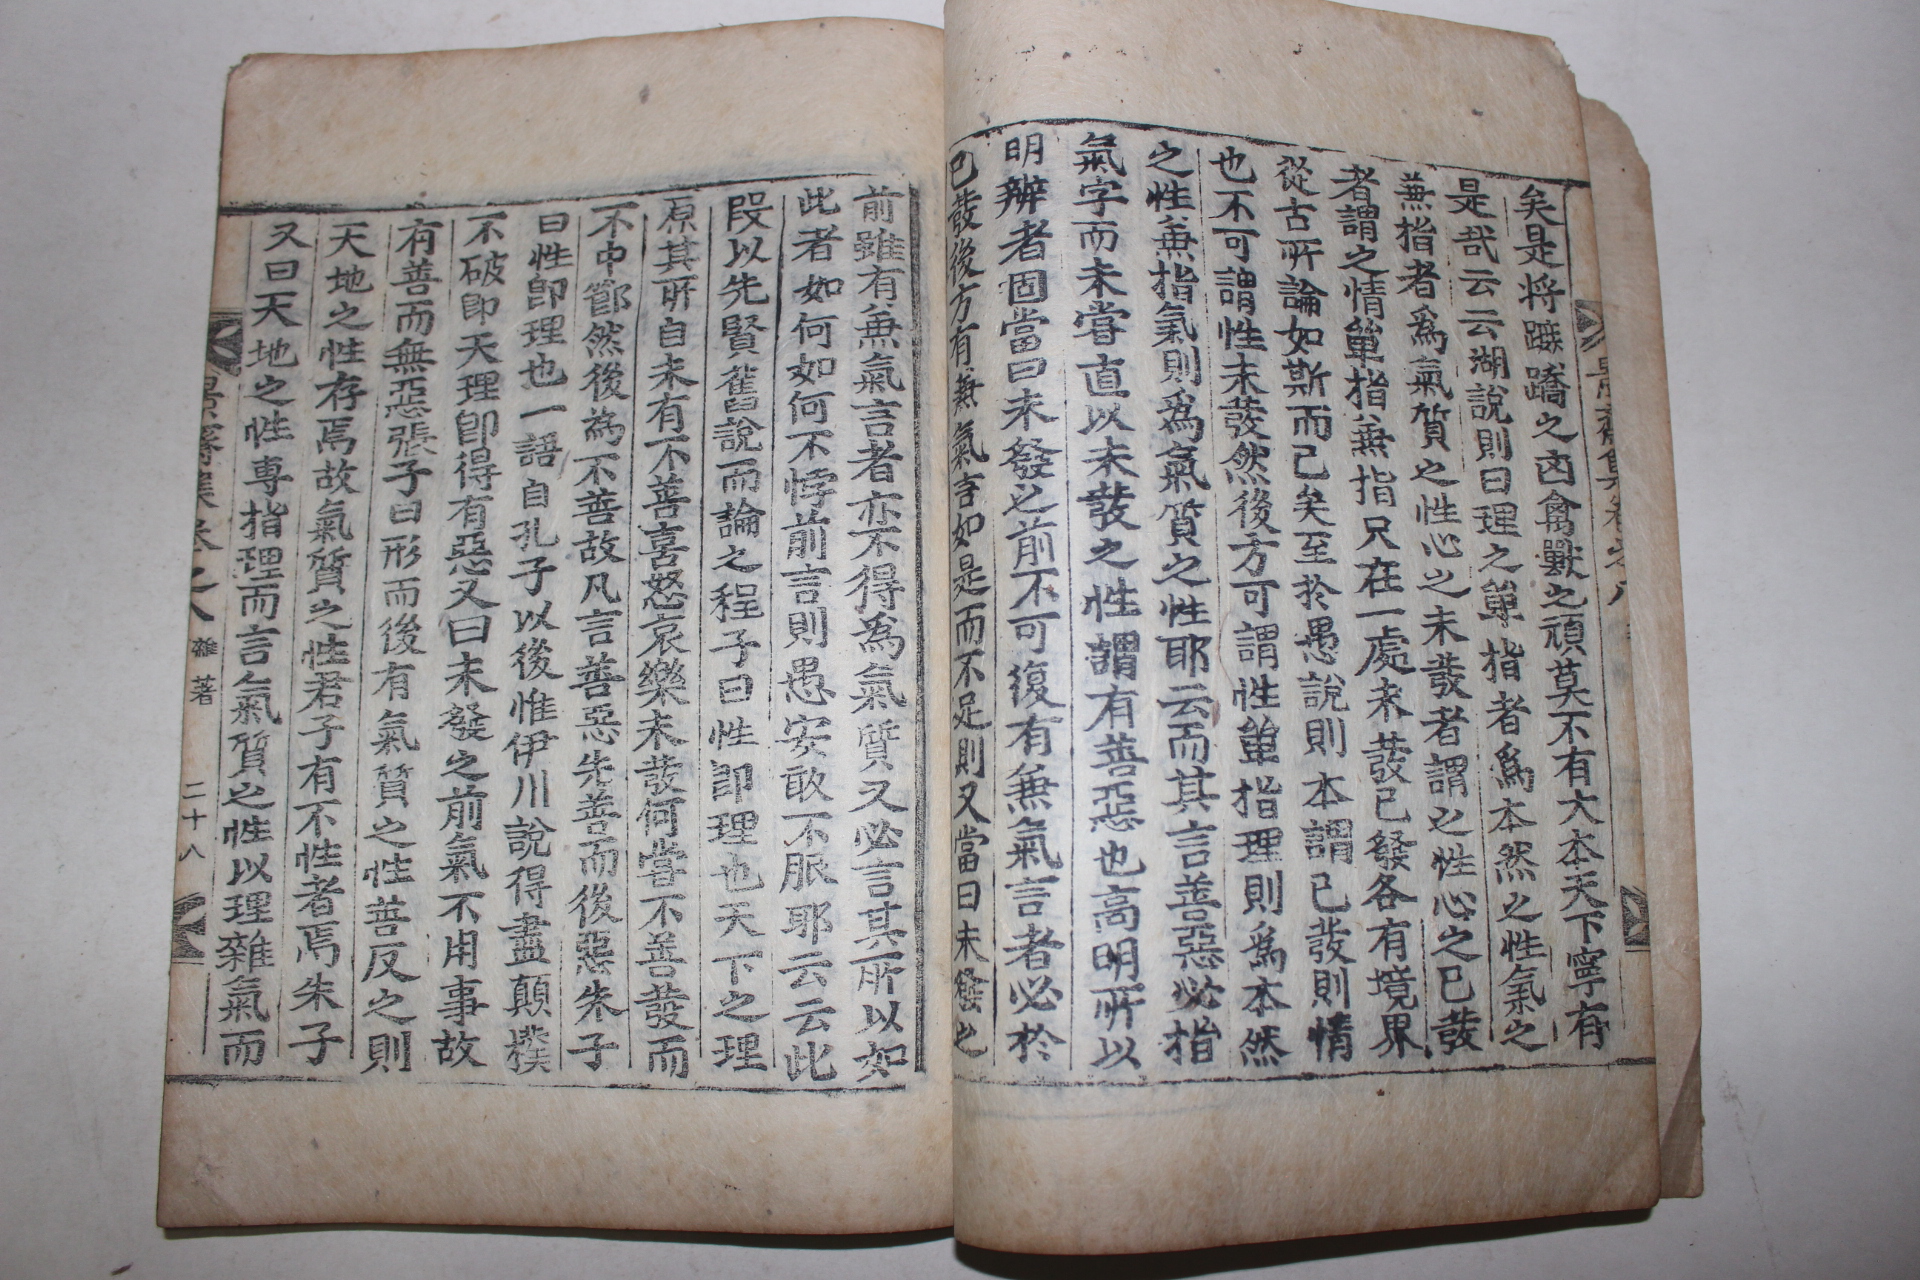 矣是將蹠蹻之凶禽獸之頑莫不有大本天下寧有
是哉云云湖說則曰理之單指者爲本然之性氣之
兼指者爲氣質之性心之未發者謂之性心之已發
者謂之情單指兼指只在一處未發已發各有境界
從古所論如斯而已矣至於愚說則本謂已發則情
也不可謂性未發然後方可謂性單指理則爲本然
之性兼指氣則爲氣質之性耶云而其言善惡必指
氣字而未嘗直以未發之性謂有善惡也高明所以
明辨者固當曰未發之前不可復有兼氣言者必於
已發後方有兼氣言如是而不足則又當曰未發之
前雖有兼氣言者亦不得為氣質又必言其所以如
此者如何如何不悖前言則愚安敢不服耶云云此
段以先賢舊說而論之程子曰性卽理也天下之理
原其所自未有不善喜怒哀樂未發何嘗不善發而
不中節然後為不善故凡言善惡先善而後惡朱子
曰性卽理也一語自孔子以後惟伊川說得盡顛撲
不破卽天理卽得有惡又曰未發之前氣不用事故
有善而無惡張子曰形而後有氣質之性善反之則
天地之性存焉故氣質之性君子有不性者焉朱子
又曰天地之性專指理而言氣質之性以理雜氣而
景齋集卷之八 雜著 二十八